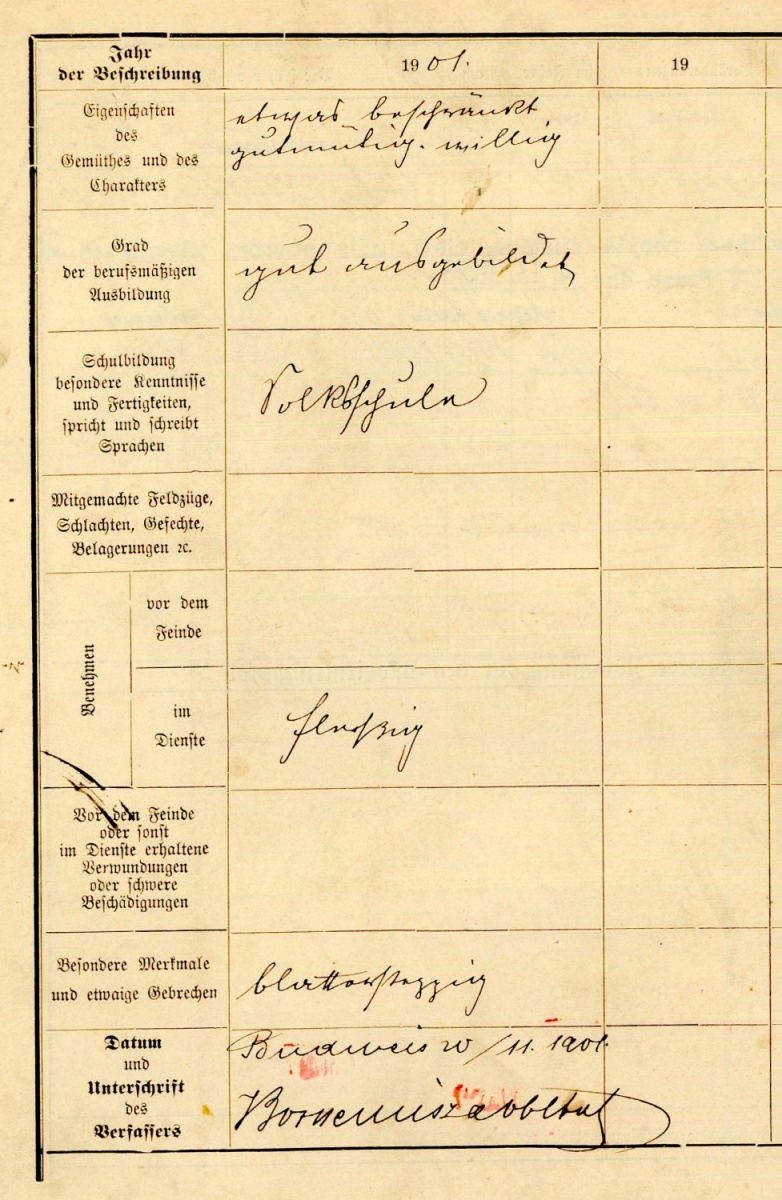 Jahr
der Beschreibung
1901.
19
Eigenschaften
des
Gemüthes und des
Charakters
etwas beschränkt
gutmütig. willig
Grad
der berufsmäßigen
Ausbildung
gut ausgebildet
Schulbildung
besondere Kenntnisse
und Fertigkeiten,
spricht und schreibt
Sprachen
Volksschule
Mitgemachte Feldzüge,
Schlachten, Gefechte,
Belagerungen ꝛc.
Benehmen
vor dem
Feinde
im
Dienste
fleißig
Vor dem Feinde
oder sonst
im Dienste erhaltene
Verwundungen
oder schwere
Beschädigungen
Besondere Merkmale
und etwaige Gebrechen
blatternarbig
Datum
und
Unterschrift
des
Verfassers
Budweis /11. 1901.